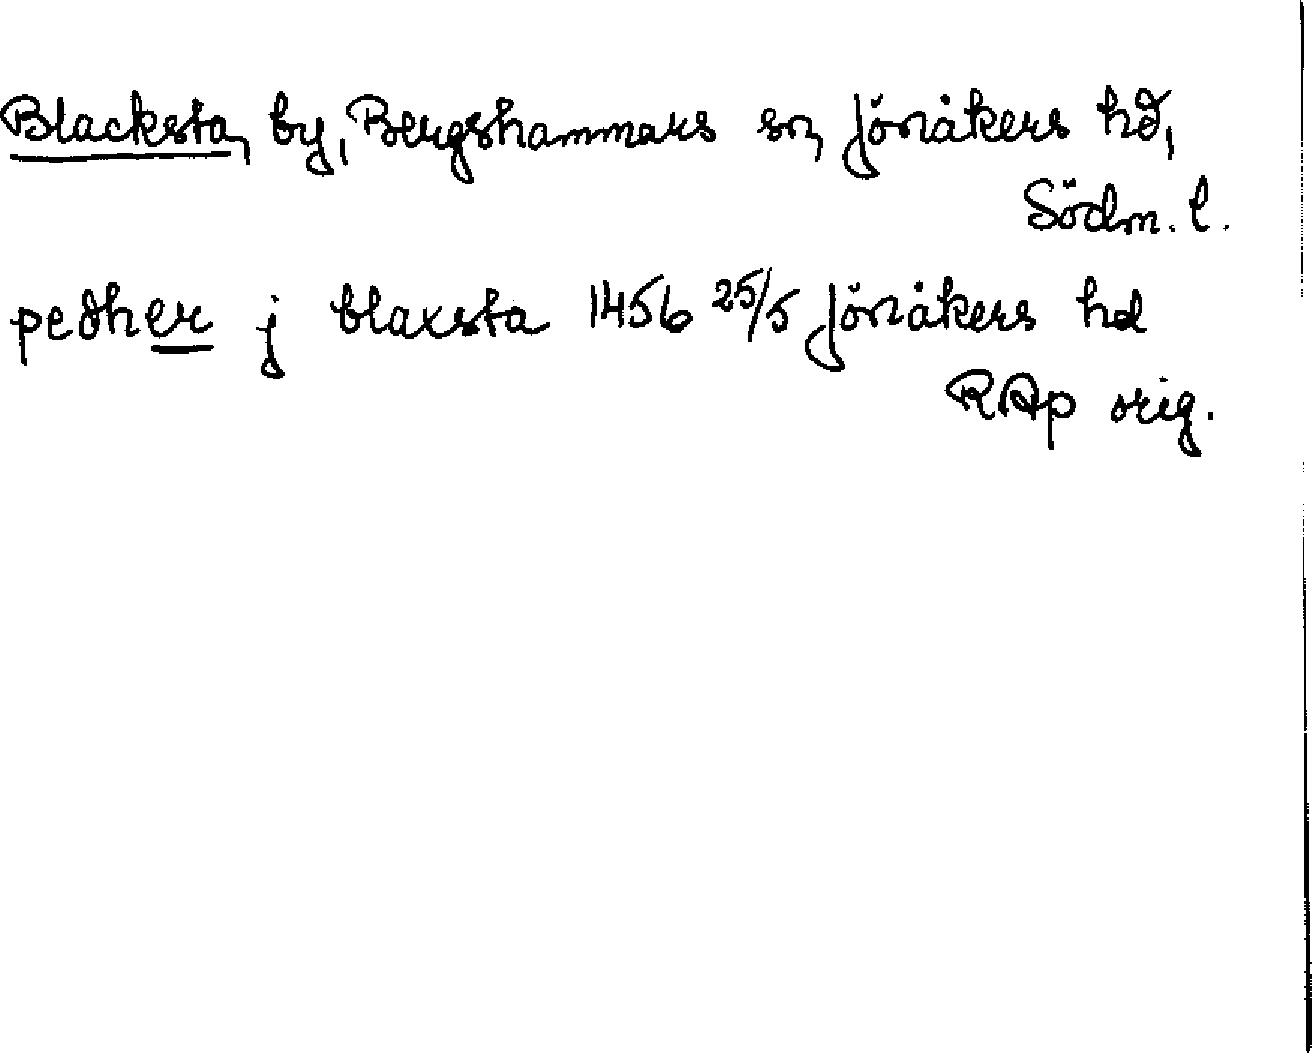 Blacksta, by, Bergshammars sn, Jönåkers hd,
Södm. l.
pedher j blaxsta 1456 25/5 Jönåkers hd
RAp orig.